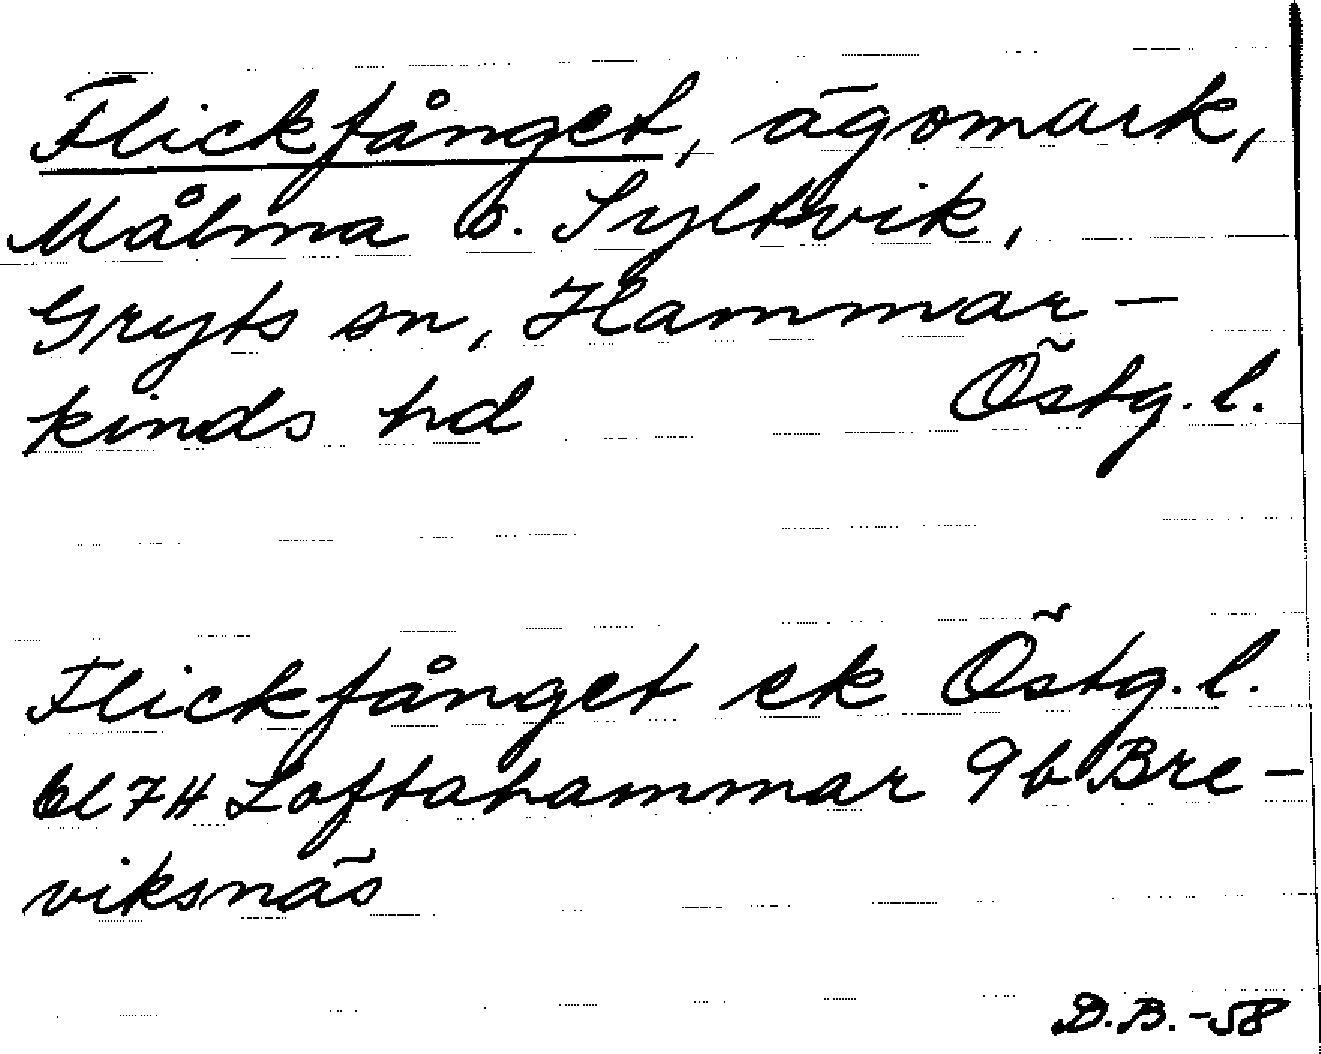 Flickfånget, ägomark,
Målma o. Syltvik,
Gryts sn, Hammar-
kinds hd Östg. l.
Flickfånget ek Östg. l.
6l7H Loftahammar 9b Bre-
viksnäs
D.B.-58